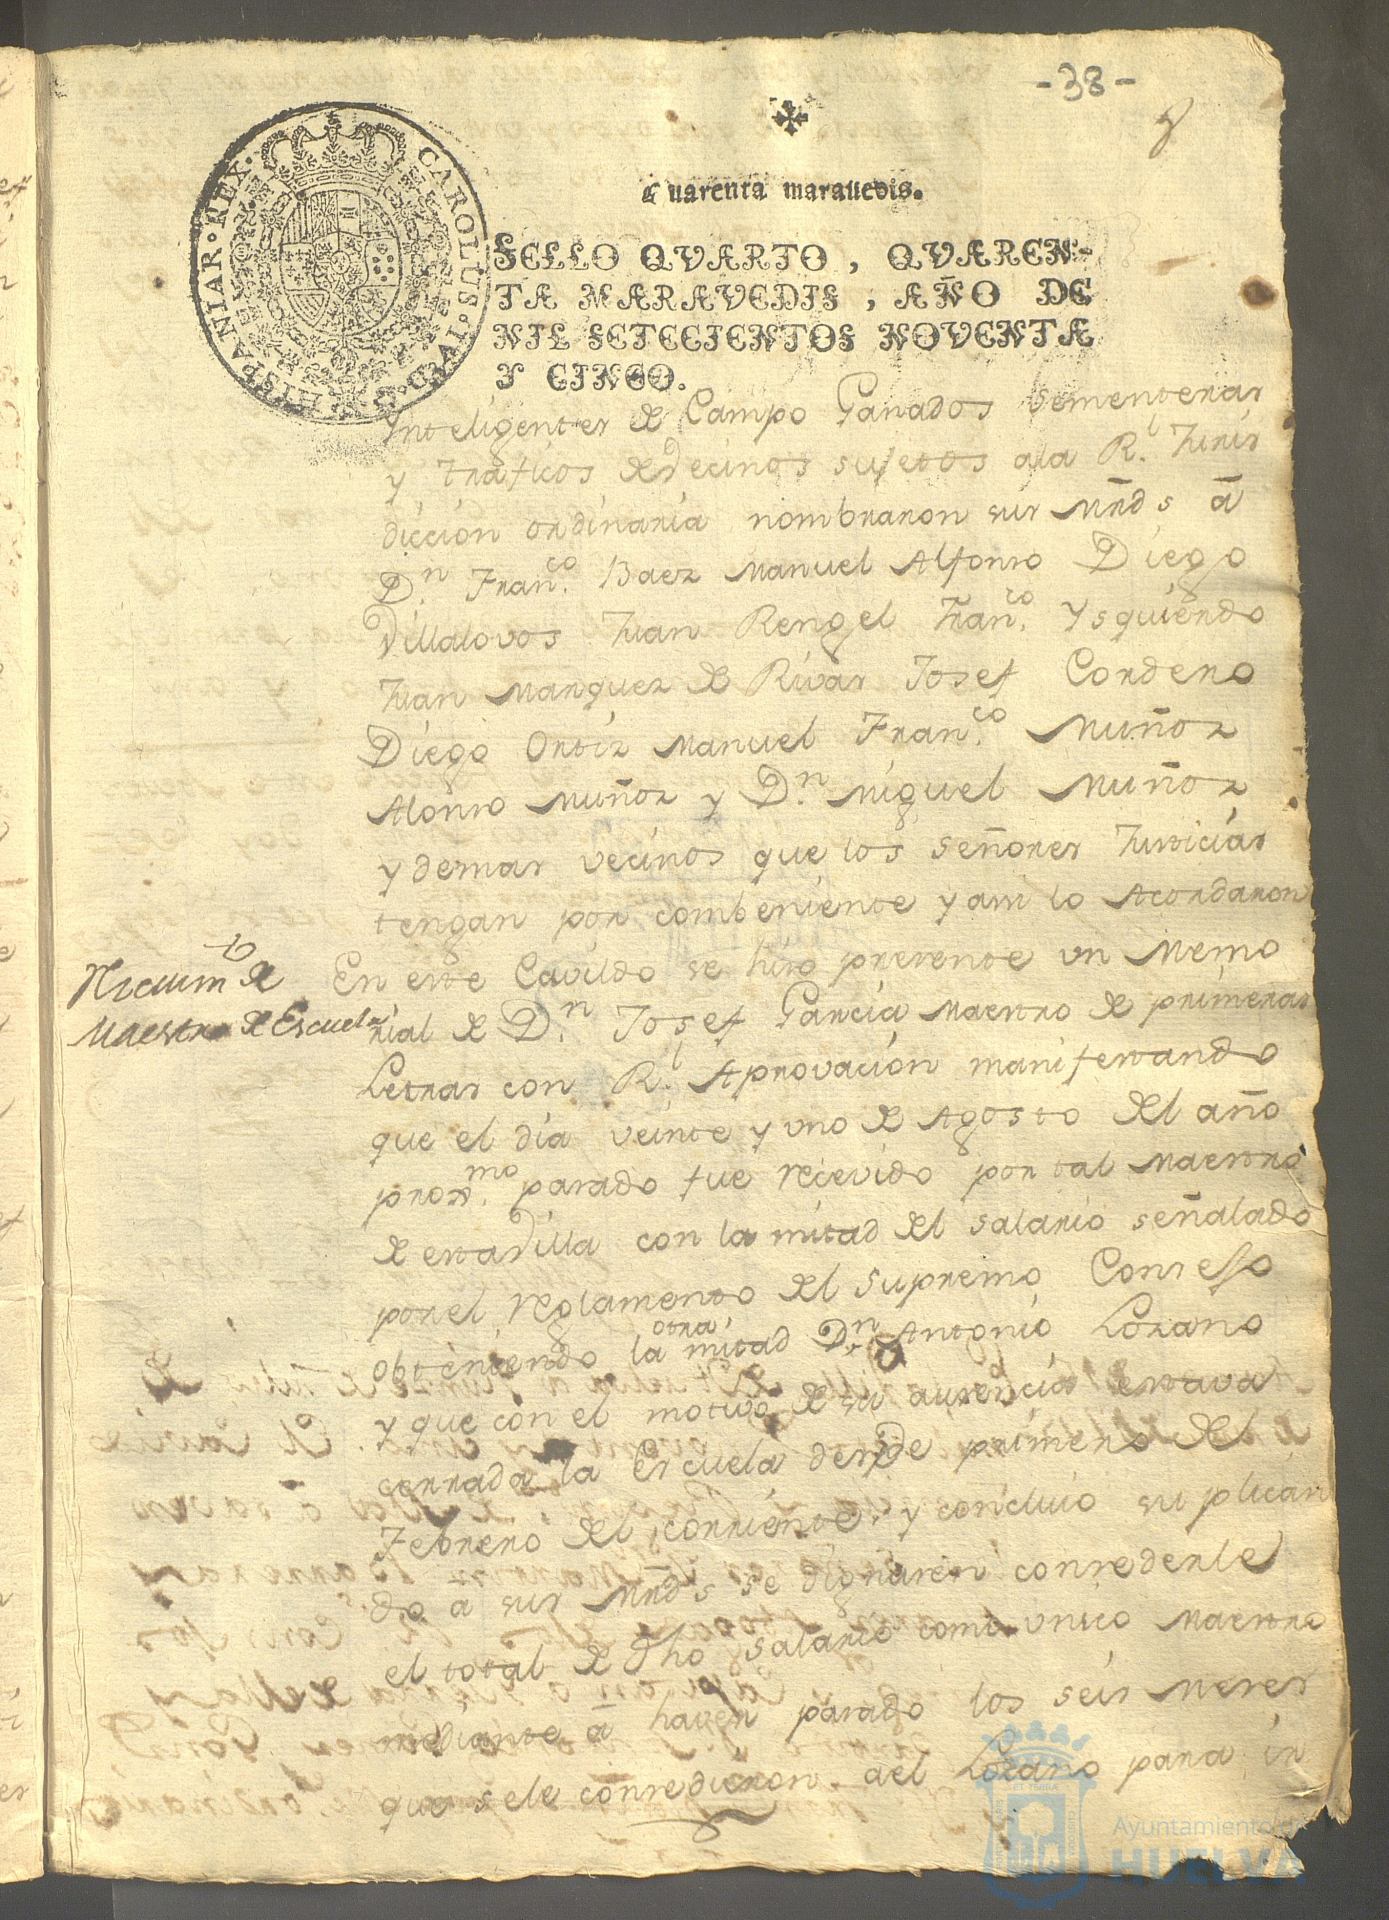 -38-
8
Quarenta marauedis.
SELLO QVARTO, QVAREN-
TA MARAVEDIS, AÑO DE
MIL SETECIENTOS NOVENTA
Y CINCO.
CAROLUS·IV·D·G· HISPANIAR·REX·
Inteligentes de Campo Ganados Sementeras
y traficos de Vecinos sujetos ala R.l Juris
dicción ordinaria nombraron sus Mrds ā
D.n Fran.co Baez Manuel Alfonso Diego
Villalovos Juan Rengel Fran.co Ysquierdo
Juan Marquez de Rivas Josef Cordero
Diego Ortiz Manuel Fran.co Muñoz
Alonso Muñoz y D.n Miguel Muñoz
y demas vecinos que los señores Justicias
tengan por combeniente y asi lo Acordaron
Maestro de Escuela
En este Cavildo se hizo presente un Memo
rial de D.n Josef Garcia Maestro de primeras
Letras con R.l Aprovacion manifestando
que el dia veinte y uno de Agosto del año
prox.mo pasado fue recevido por tal Maestro
de esta Villa con la mitad del salario señalado
por el reglamento del supremo Consejo
obteniendo la otra mitad D.n Antonio Lozano
y que con el motivo de su ausencia estava
cerrada la Escuela desde primero del
Febrero del corriente, y concluio suplican
do ā sus Mrds se dignasen concederle
el total de dho salario como unico Maestro
mediante ā haver pasado los seis meses
que sele concedieron ael Lozano para ir
Ayuntamiento de
HUELVA